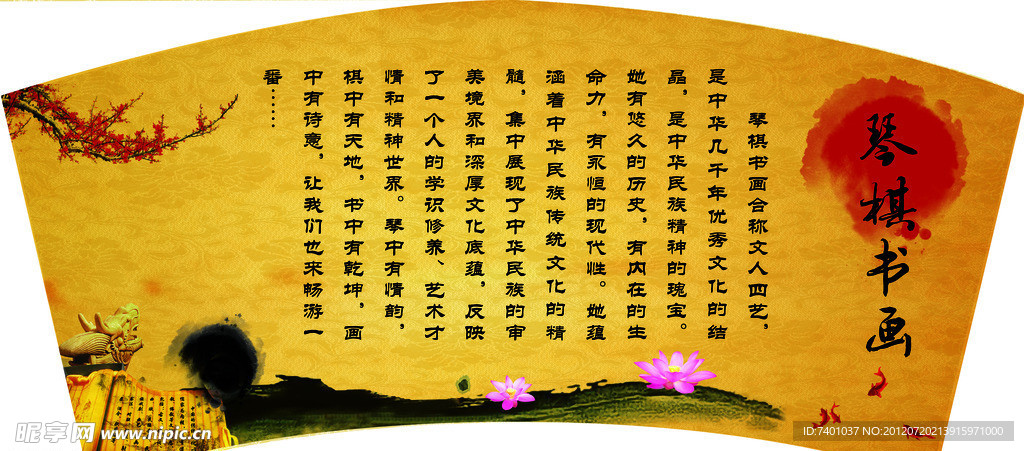 琴棋书画
琴棋书画合称文人四艺，
是中华几千年优秀文化的结
晶，是中华民族精神的瑰宝。
她有悠久的历史，有内在的生
命力，有永恒的现代性。她蕴
涵着中华民族传统文化的精
髓，集中展现了中华民族的审
美境界和深厚文化底蕴，反映
了一个人的学识修养、艺术才
情和精神世界。琴中有情韵，
棋中有天地，书中有乾坤，画
中有诗意，让我们也来畅游一
番……
昵享网 www.nipic.cn
ID:7401037 NO:20120720213915971000